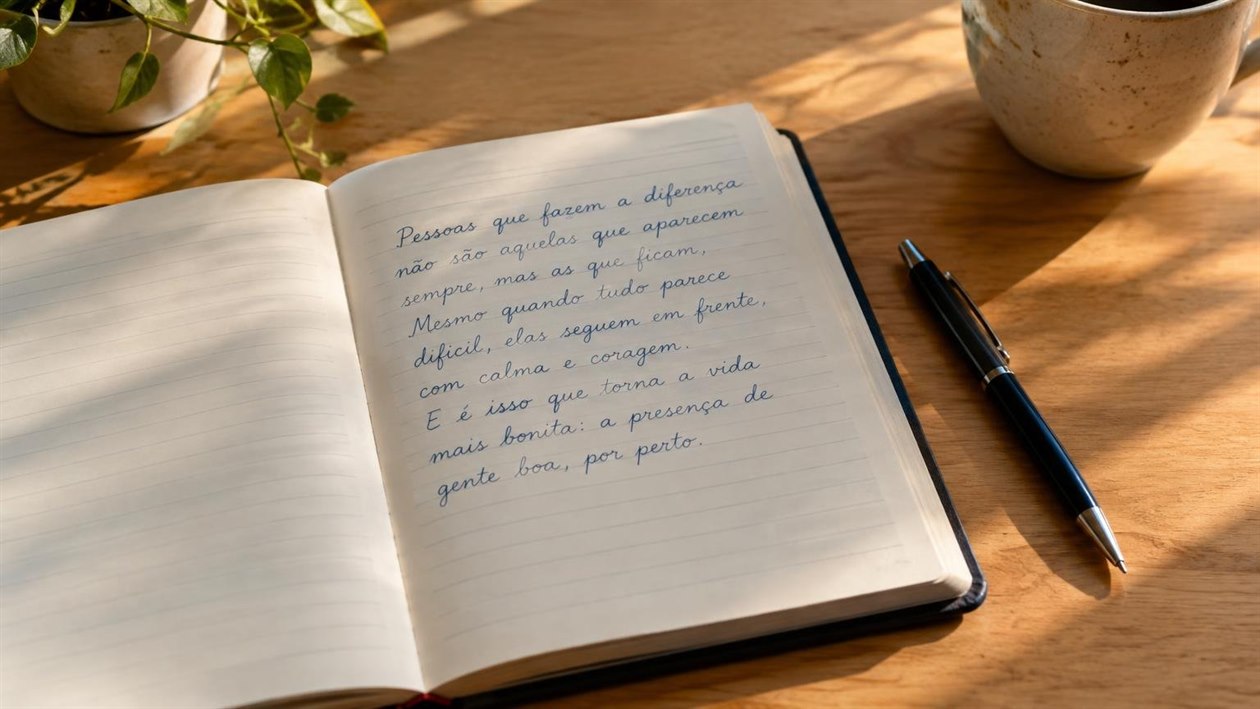 Pessoas que fazem a diferença
não são aquelas que aparecem
sempre, mas as que ficam,
Mesmo quando tudo parece
dificil, elas seguem em frente,
com calma e coragem.
E é isso que torna a vida
mais bonita: a presença de
gente boa, por perto.